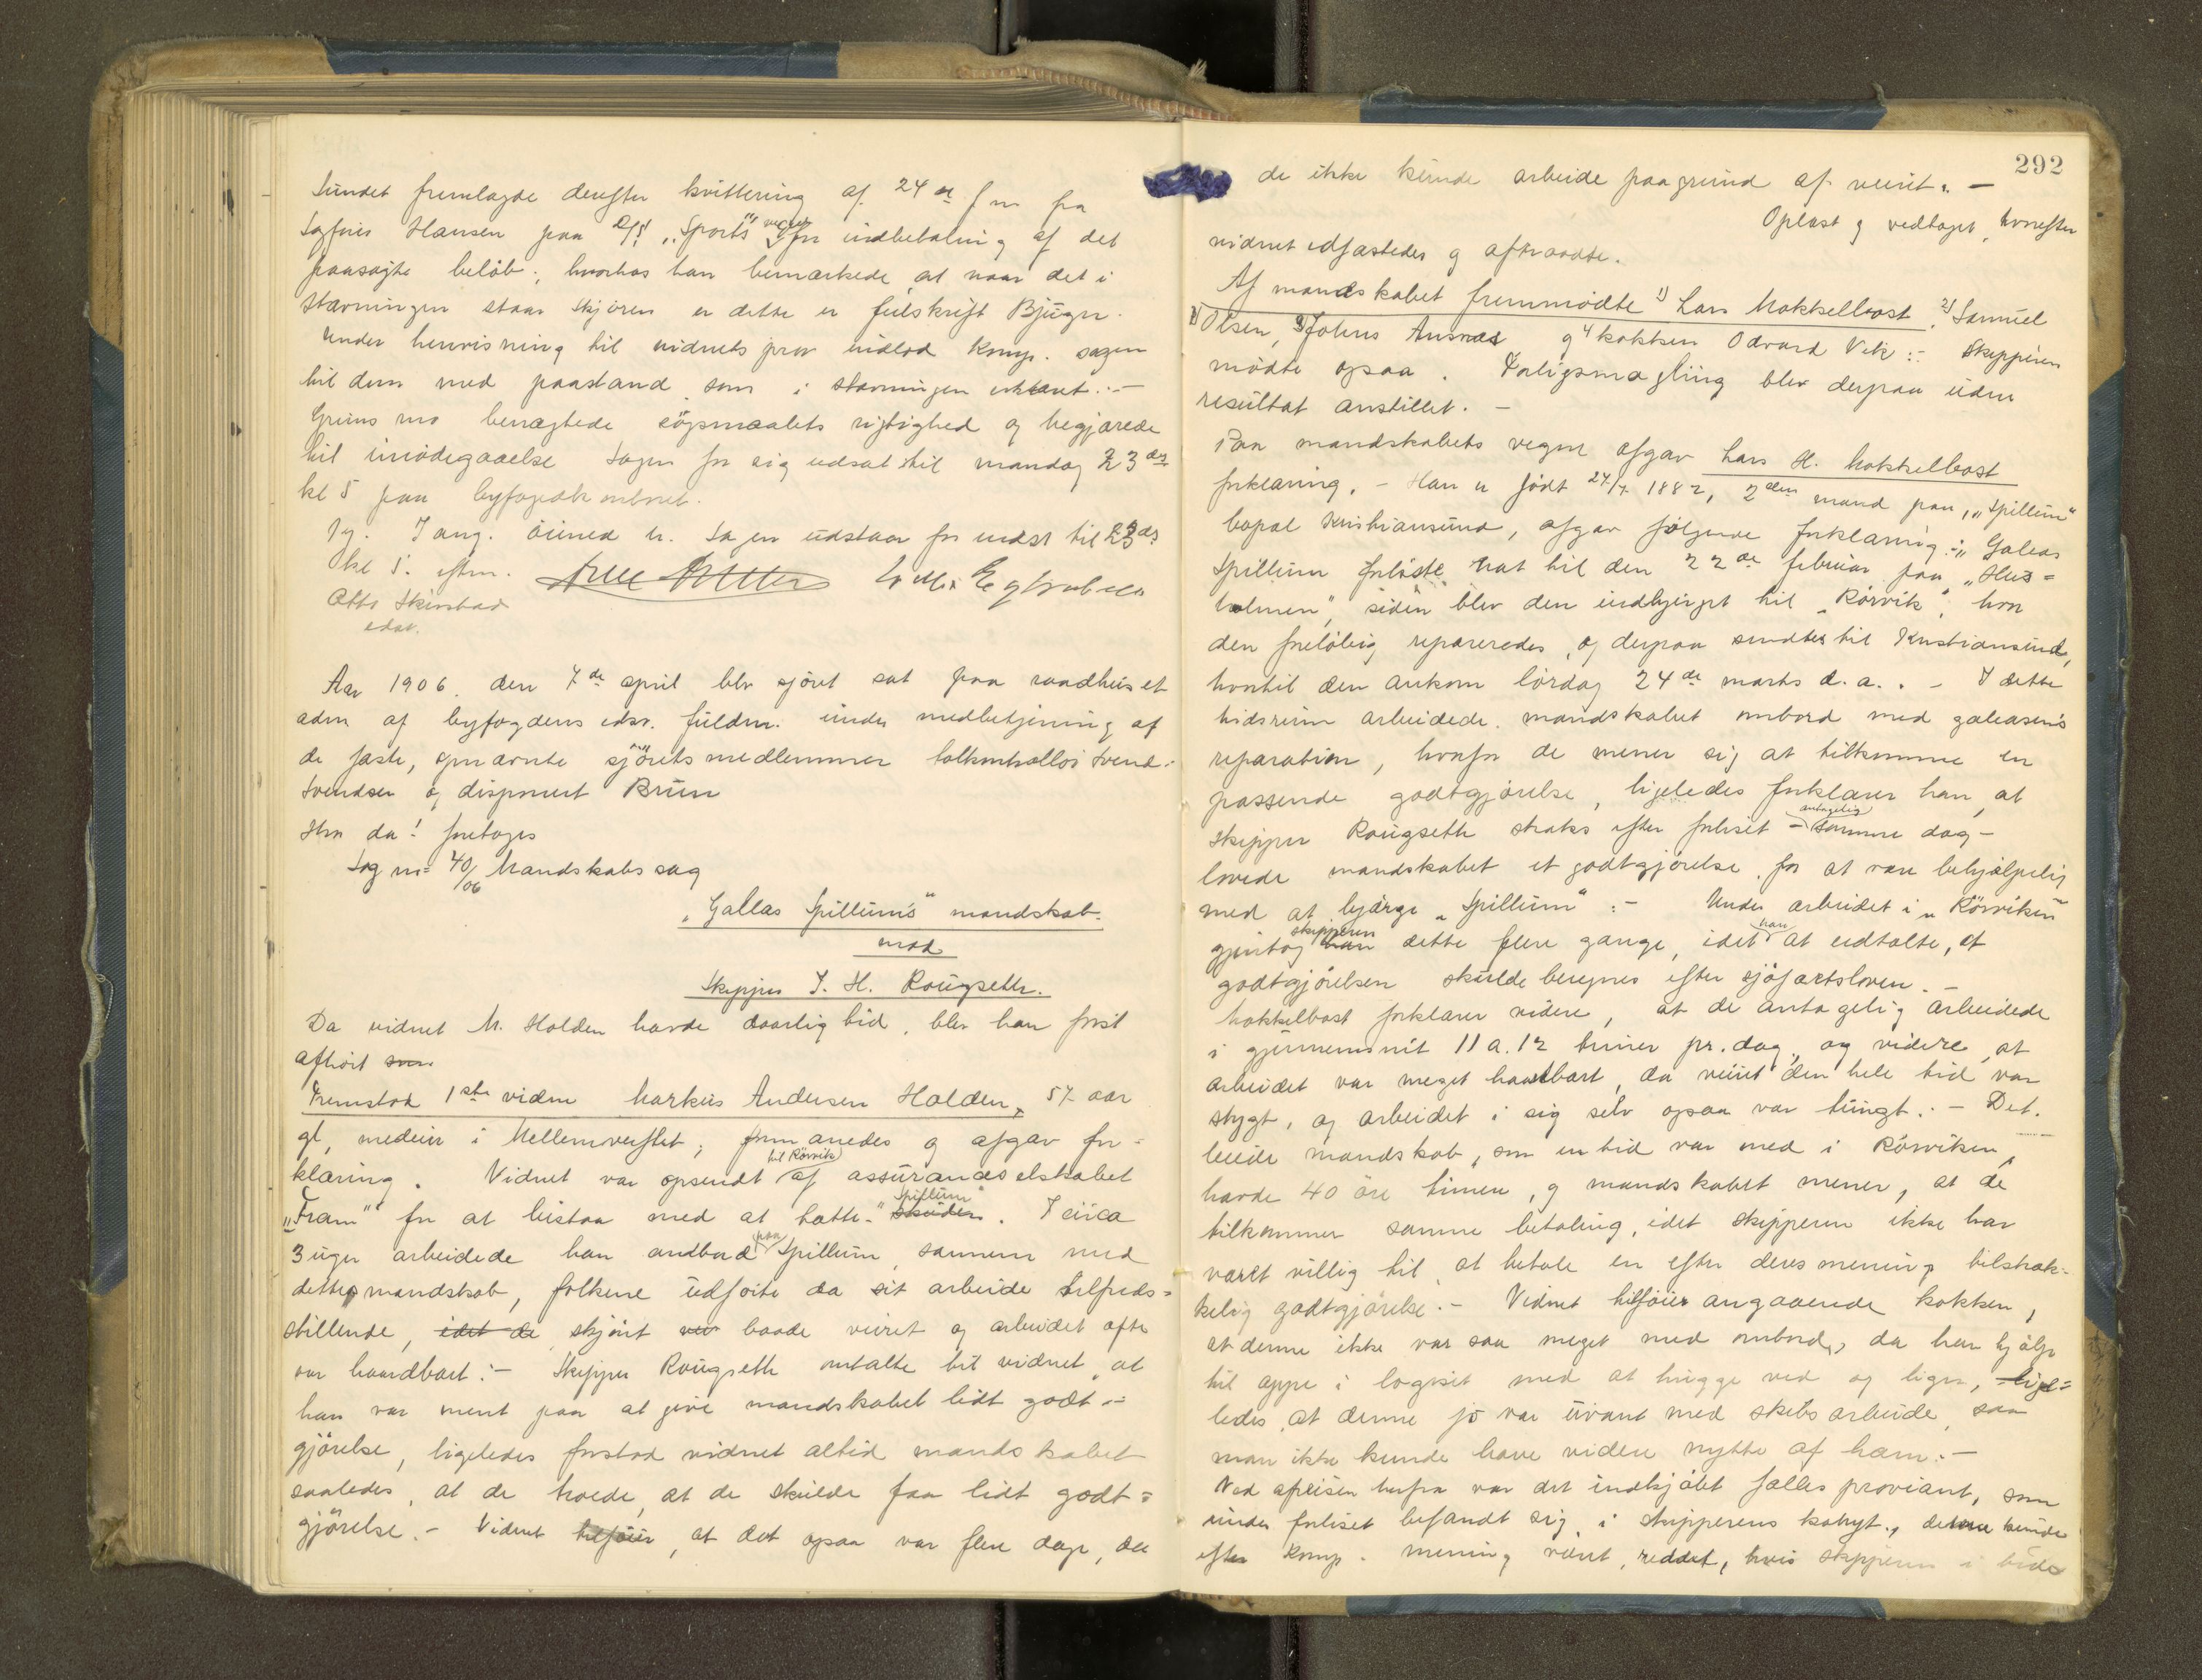 Sundet fremlagde derefter kvittering af 24de f m fra
Sagfører Hansen paa D/S "Sports" vegne for indbetaling af det
paasagte beløb; hvorhos han bemærkede, at naar det i
stævningen staar Skjøren er dette er feilskrift Bjugn.
Under henvisning til vidnets prov indlod Komp. sagen
til dom med paastand som i stævningen erklæret. –
Grüns mo benægtede søgsmaalets rigtighed og begjærede
til imødegaaelse sagen for sig udsat til mandag 23de
kl 5 paa byfogedkontoret.
Og. I ang. øined h. Sagen udstaar for indst til 23de
kl 5. eftm.
Otto Skirstad
edsv.
Aar 1906 den 7de april blev sjøret sat paa raadhuset
adm af byfogdens edsv. fuldm. under medbetjening af
de faste, opnævnte sjøretsmedlemmer tolkontrollør Svend
Svendsen og disponent Brun
Hvor da! foretoges
Sag no 40/06 Mandskabs sag
"Gallas Spillum's" mandskab
mod
Skipper J. H. Rougseth.
Da vidnet M. Holden havde daarlig tid, blev han først
afhørt som
Fremstod 1ste vidne Markus Andersen Holden, 57 aar
gl, medeier i Mellemverftet; formanedes og afgav for=
klaring. Vidnet var opsendt til Rörvik af assuranceselskabet
"Fram" for at bistaa med at tætte "Spillum" skuden. I circa
3 uger arbeidede han ombord paa Spillum, sammen med
dettes mandskab, folkene udførte da sit arbeide tilfreds=
stillende, idet de skjønt var baade veiret og arbeidet ofte
var haardbart:– Skipper Rougseth omtalte til vidnet, at
han var ment paa at give mandskabet lidt godt=
gjørelse, ligeledes forstod vidnet altid mandskabet
saaledes, at de troede, at de skulde faa lidt godt=
gjørelse. – Vidnet tilføier, at det ogsaa var flere dage, da
292
de ikke kunde arbeide paa grund af veiret. –
Oplæst og vedtaget, hvorefter
vidnet edfæstedes og aftraadte.
Af mandskabet fremmødte 1) Lars Mokkelbost, 2) Samuel
Olsen, 3) Johns Ausnæs og 4 kokken Odvard Vik:– Skipperen
mødte ogsaa. Forligsmægling blev derpaa uden
resultat anstillet. –
Paa mandskabets vegne afgav Lars H. Mokkelbost
forklaring. – Han er født 27/7 1882, 2den mand paa, "Spillum"
bopæl Kristiansund, afgav følgende forklaring:– "Galeas
Spillum forliste nat til den 22de februar paa "Hus=
holmen", siden blev den indbjerget til "Rörvik", hvor
den foreløbig repareredes, og derpaa sendtes til Kristiansund,
hvortil den ankom lördag 24de marts d. a. . – I dette
tidsrum arbeidede mandskabet ombord med galeasens
reparation, hvorfor de mener sig at tilkomme en
passende godtgjørelse, ligeledes forklarer han, at
skipper Rougseth straks efter forliset – antagelig samme dag –
lovede mandskabet et godtgjørelse for at være behjælpelig
med at bjærge "Spillum" :– Under arbeidet i "Rörviken"
gjentog skipperen han dette flere gange, idet han at udtalte, at
godtgjørelsen skulde beregnes efter sjøfartsloven. –
Mokkelbost forklarer videre, at de antagelig arbeidede
i gjennemsnit 11 a. 12 timer pr. dag, og videre, at
arbeidet var meget haardbart, da veiret den hele tid var
stygt, og arbeidet i sig selv ogsaa var tungt.:– Det
leiede mandskab, som en tid var med i Rörviken,
havde 40 øre timen, og mandskabet mener, at de
tilkommer samme betaling, idet skipperen ikke har
været villig til at betale en efter deres mening tilstræk=
kelig godtgjørelse. – Vidnet tilføier angaaende kokken,
at denne ikke var saa meget med ombord, da han hjalp
til oppe i logiset med at hugge ved og lign, – lige=
ledes, at denne jo var uvant med skibsarbeide, saa
man ikke kunde have videre nytte af ham. –
Ved afreisen herfra var det indkjøbt fælles proviant, som
under forliset befandt sig i skipperens kahyt, denne kunde
efter Komp. mening været reddet, hvis skipperen i tide